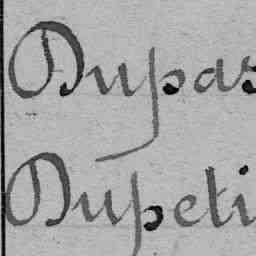 Dupas
Dupeti